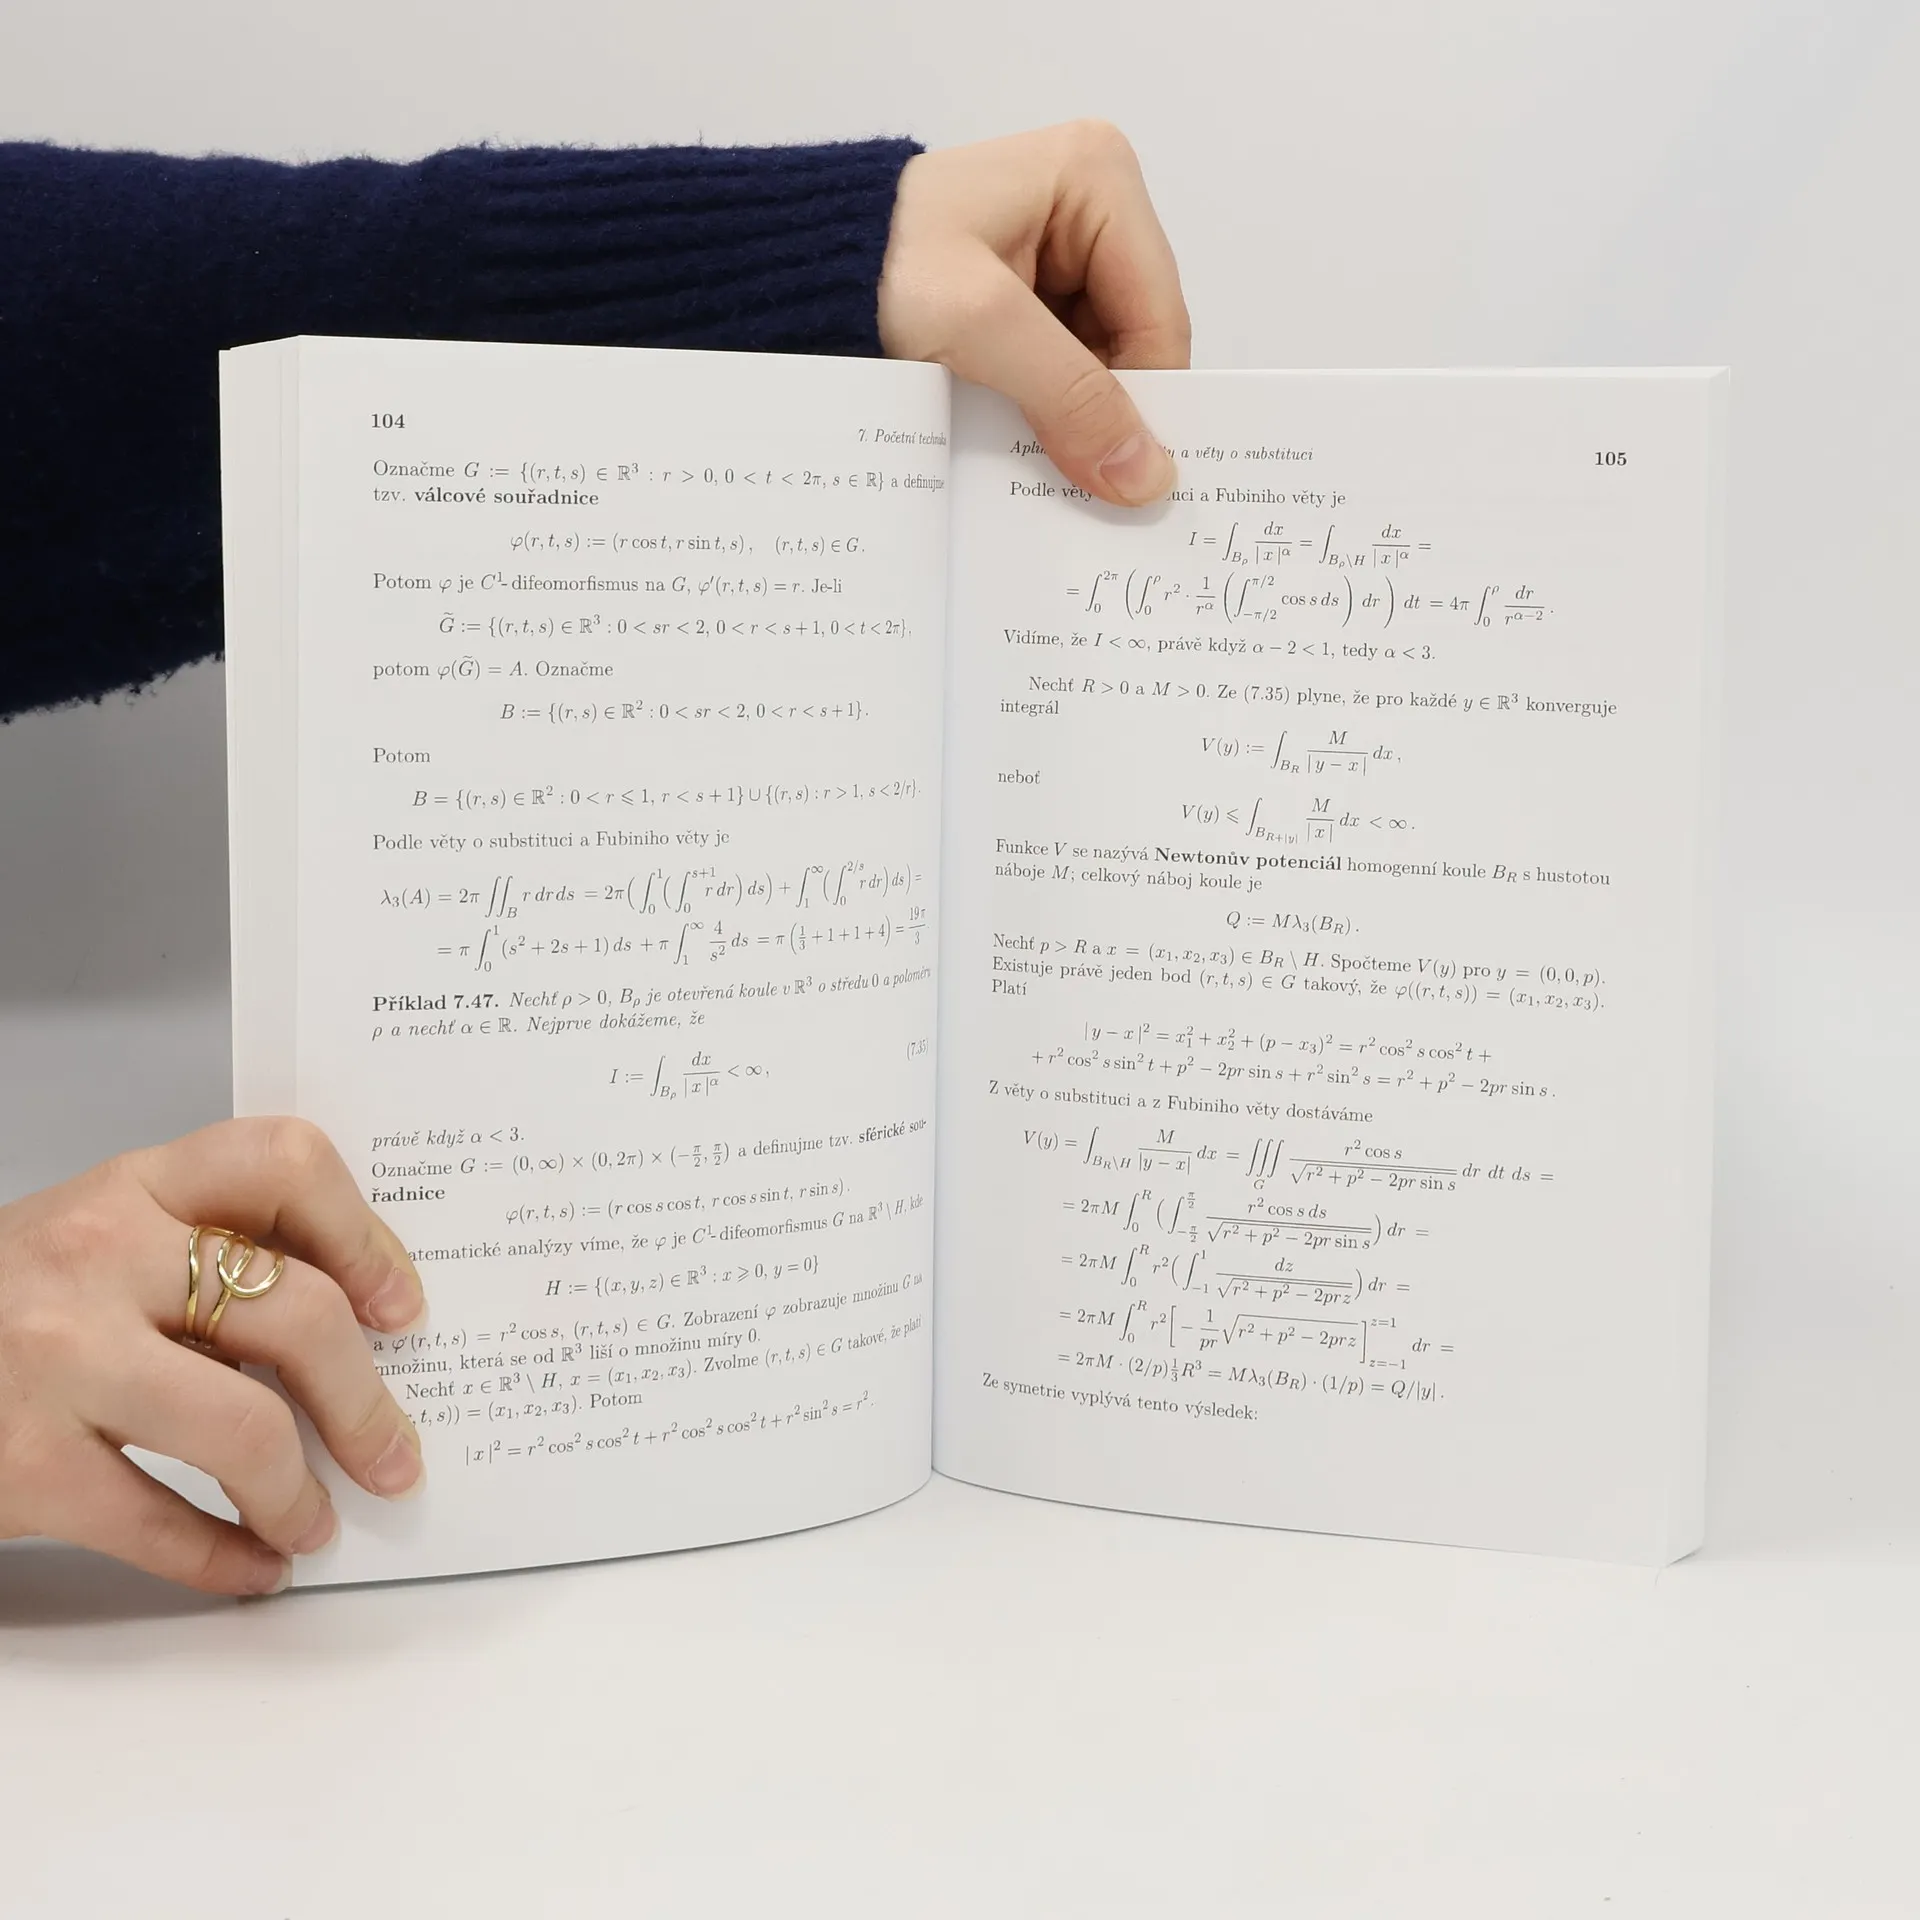 104
7. Početní technika
Označme G := {(r, t, s) ∈ ℝ³ : r > 0, 0 < t < 2π, s ∈ ℝ} a definujme
tzv. válcové souřadnice
φ(r, t, s) := (r cos t, r sin t, s), (r, t, s) ∈ G.
Potom φ je C¹-difeomorfismus na G, φ′(r, t, s) = r. Je-li
G̃ := {(r, t, s) ∈ ℝ³ : 0 < sr < 2, 0 < r < s+1, 0 < t < 2π},
potom φ(G̃) = A. Označme
B := {(r, s) ∈ ℝ² : 0 < sr < 2, 0 < r < s+1}.
Potom
B = {(r, s) ∈ ℝ² : 0 < r ⩽ 1, r < s+1} ∪ {(r, s) : r > 1, s < 2/r}.
Podle věty o substituci a Fubiniho věty je
λ₃(A) = 2π ∬_B r dr ds = 2π(∫_0^1 (∫_0^{s+1} r dr) ds) + ∫_1^∞ (∫_0^{2/s} r dr) ds) =
= π ∫_0^1 (s² + 2s + 1) ds + π ∫_1^∞ 4/s² ds = π (1/3 + 1 + 1 + 4) = 19π/3
Příklad 7.47. Nechť ρ > 0, B_ρ je otevřená koule v ℝ³ o středu 0 a poloměru
ρ a nechť α ∈ ℝ. Nejprve dokážeme, že
I := ∫_{B_ρ} dx/|x|^α < ∞, (7.35)
právě když α < 3.
Označme G := (0, ∞) × (0, 2π) × (−π/2, π/2) a definujme tzv. sférické sou-
řadnice
φ(r, t, s) := (r cos s cos t, r cos s sin t, r sin s).
atematické analýzy víme, že φ je C¹-difeomorfismus G na ℝ³ \ H, kde
H := {(x, y, z) ∈ ℝ³ : x ⩾ 0, y = 0}
a φ′(r, t, s) = r² cos s, (r, t, s) ∈ G. Zobrazení φ zobrazuje množinu G na
množinu, která se od ℝ³ liší o množinu míry 0.
Nechť x ∈ ℝ³ \ H, x = (x₁, x₂, x₃). Zvolme (r, t, s) ∈ G takové, že platí
, t, s)) = (x₁, x₂, x₃). Potom
|x|² = r² cos² s cos² t + r² cos² s cos² t + r² sin² s = r².
y a věty o substituci
105
Podle věty uci a Fubiniho věty je
I = ∫_{B_ρ} dx/|x|^α = ∫_{B_ρ\H} dx/|x|^α =
= ∫_0^{2π} (∫_0^ρ r² · 1/r^α (∫_{−π/2}^{π/2} cos s ds) dr) dt = 4π ∫_0^ρ dr/r^{α−2}.
Vidíme, že I < ∞, právě když α − 2 < 1, tedy α < 3.
Nechť R > 0 a M > 0. Ze (7.35) plyne, že pro každé y ∈ ℝ³ konverguje
integrál
V(y) := ∫_{B_R} M/|y − x| dx,
neboť
V(y) ⩽ ∫_{B_{R+|y|}} M/|x| dx < ∞.
Funkce V se nazývá Newtonův potenciál homogenní koule B_R s hustotou
náboje M; celkový náboj koule je
Q := Mλ₃(B_R).
Nechť p > R a x = (x₁, x₂, x₃) ∈ B_R \ H. Spočteme V(y) pro y = (0, 0, p).
Existuje právě jeden bod (r, t, s) ∈ G takový, že φ((r, t, s)) = (x₁, x₂, x₃).
Platí
|y − x|² = x₁² + x₂² + (p − x₃)² = r² cos² s cos² t +
+ r² cos² s sin² t + p² − 2pr sin s + r² sin² s = r² + p² − 2pr sin s.
Z věty o substituci a z Fubiniho věty dostáváme
V(y) = ∫_{B_R\H} M/|y − x| dx = ∭_G r² cos s/√(r² + p² − 2pr sin s) dr dt ds =
= 2πM ∫_0^R (∫_{−π/2}^{π/2} r² cos s ds/√(r² + p² − 2pr sin s)) dr =
= 2πM ∫_0^R r² (∫_{−1}^1 dz/√(r² + p² − 2prz)) dr =
= 2πM ∫_0^R r² [− 1/pr √(r² + p² − 2prz)]_{z=−1}^{z=1} dr =
= 2πM · (2/p) 1/3 R³ = Mλ₃(B_R) · (1/p) = Q/|y|.
Ze symetrie vyplývá tento výsledek: